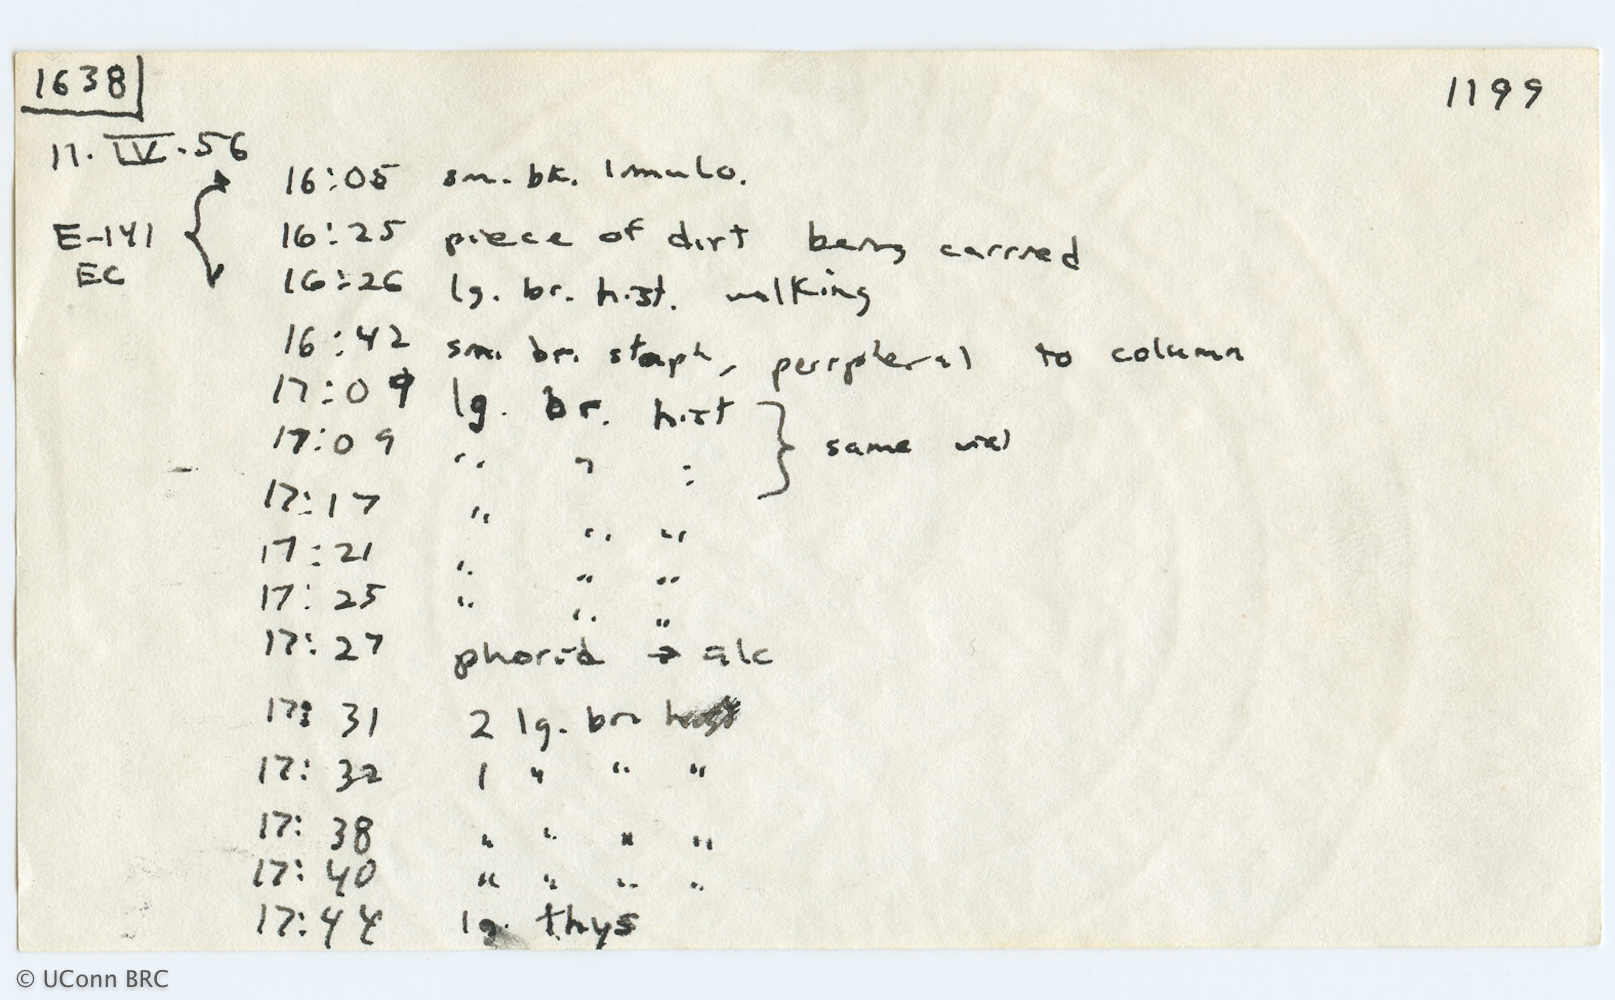 1638
1199
11. IV. 56
E-141
EC
16:05 sm. bk. limulo.
16:25 piece of dirt being carried
16:26 lg. br. hist. walking
16:42 sm. br. staph, peripheral to column
17:09 lg. br. hist } same vial
17:09 " " "
17:17 " " "
17:21 " " "
17:25 " " "
17:27 phorid → alc
17:31 2 lg. brn hist
17:32 1 " " "
17:38 " " " "
17:40 " " " "
17:44 lg. thys
© UConn BRC